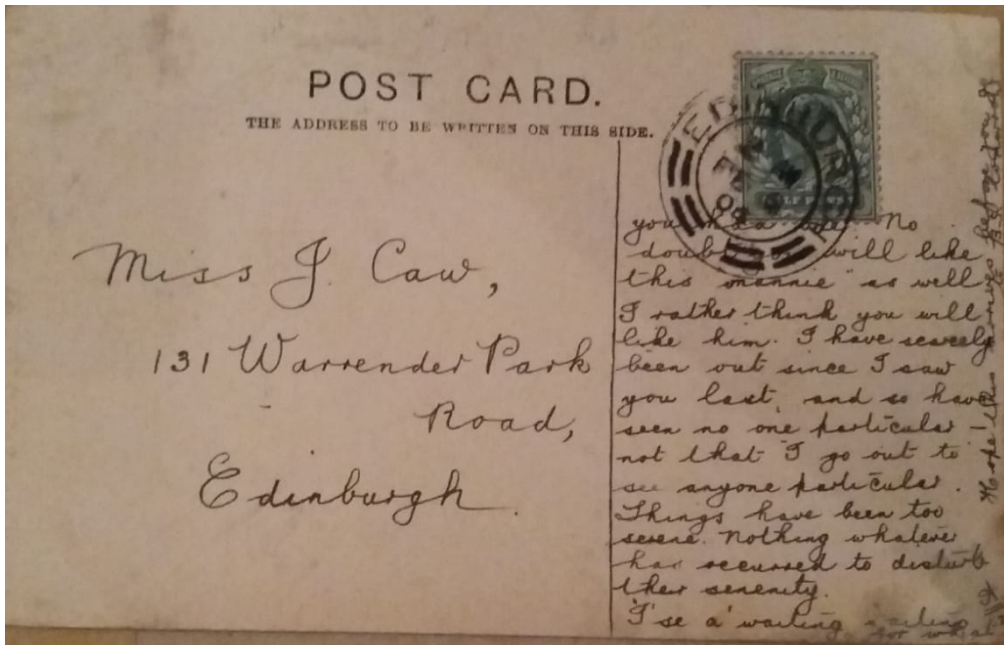 POST CARD.
THE ADDRESS TO BE WRITTEN ON THIS SIDE.
EDINBURGH
FE
09
HALF PENNY
Miss J. Caw,
131 Warrender Park
Road,
Edinburgh.
you No
will like
this "mannie" as well
I rather think you will
like him. I have scarcely
been out since I saw
you last, and so have
seen no one particular
not that I go out to
see anyone particular.
Things have been too
serene. Nothing whatever
has occurred to disturb
their serenity.
I'se a' waiting waiting
for what
Hope this